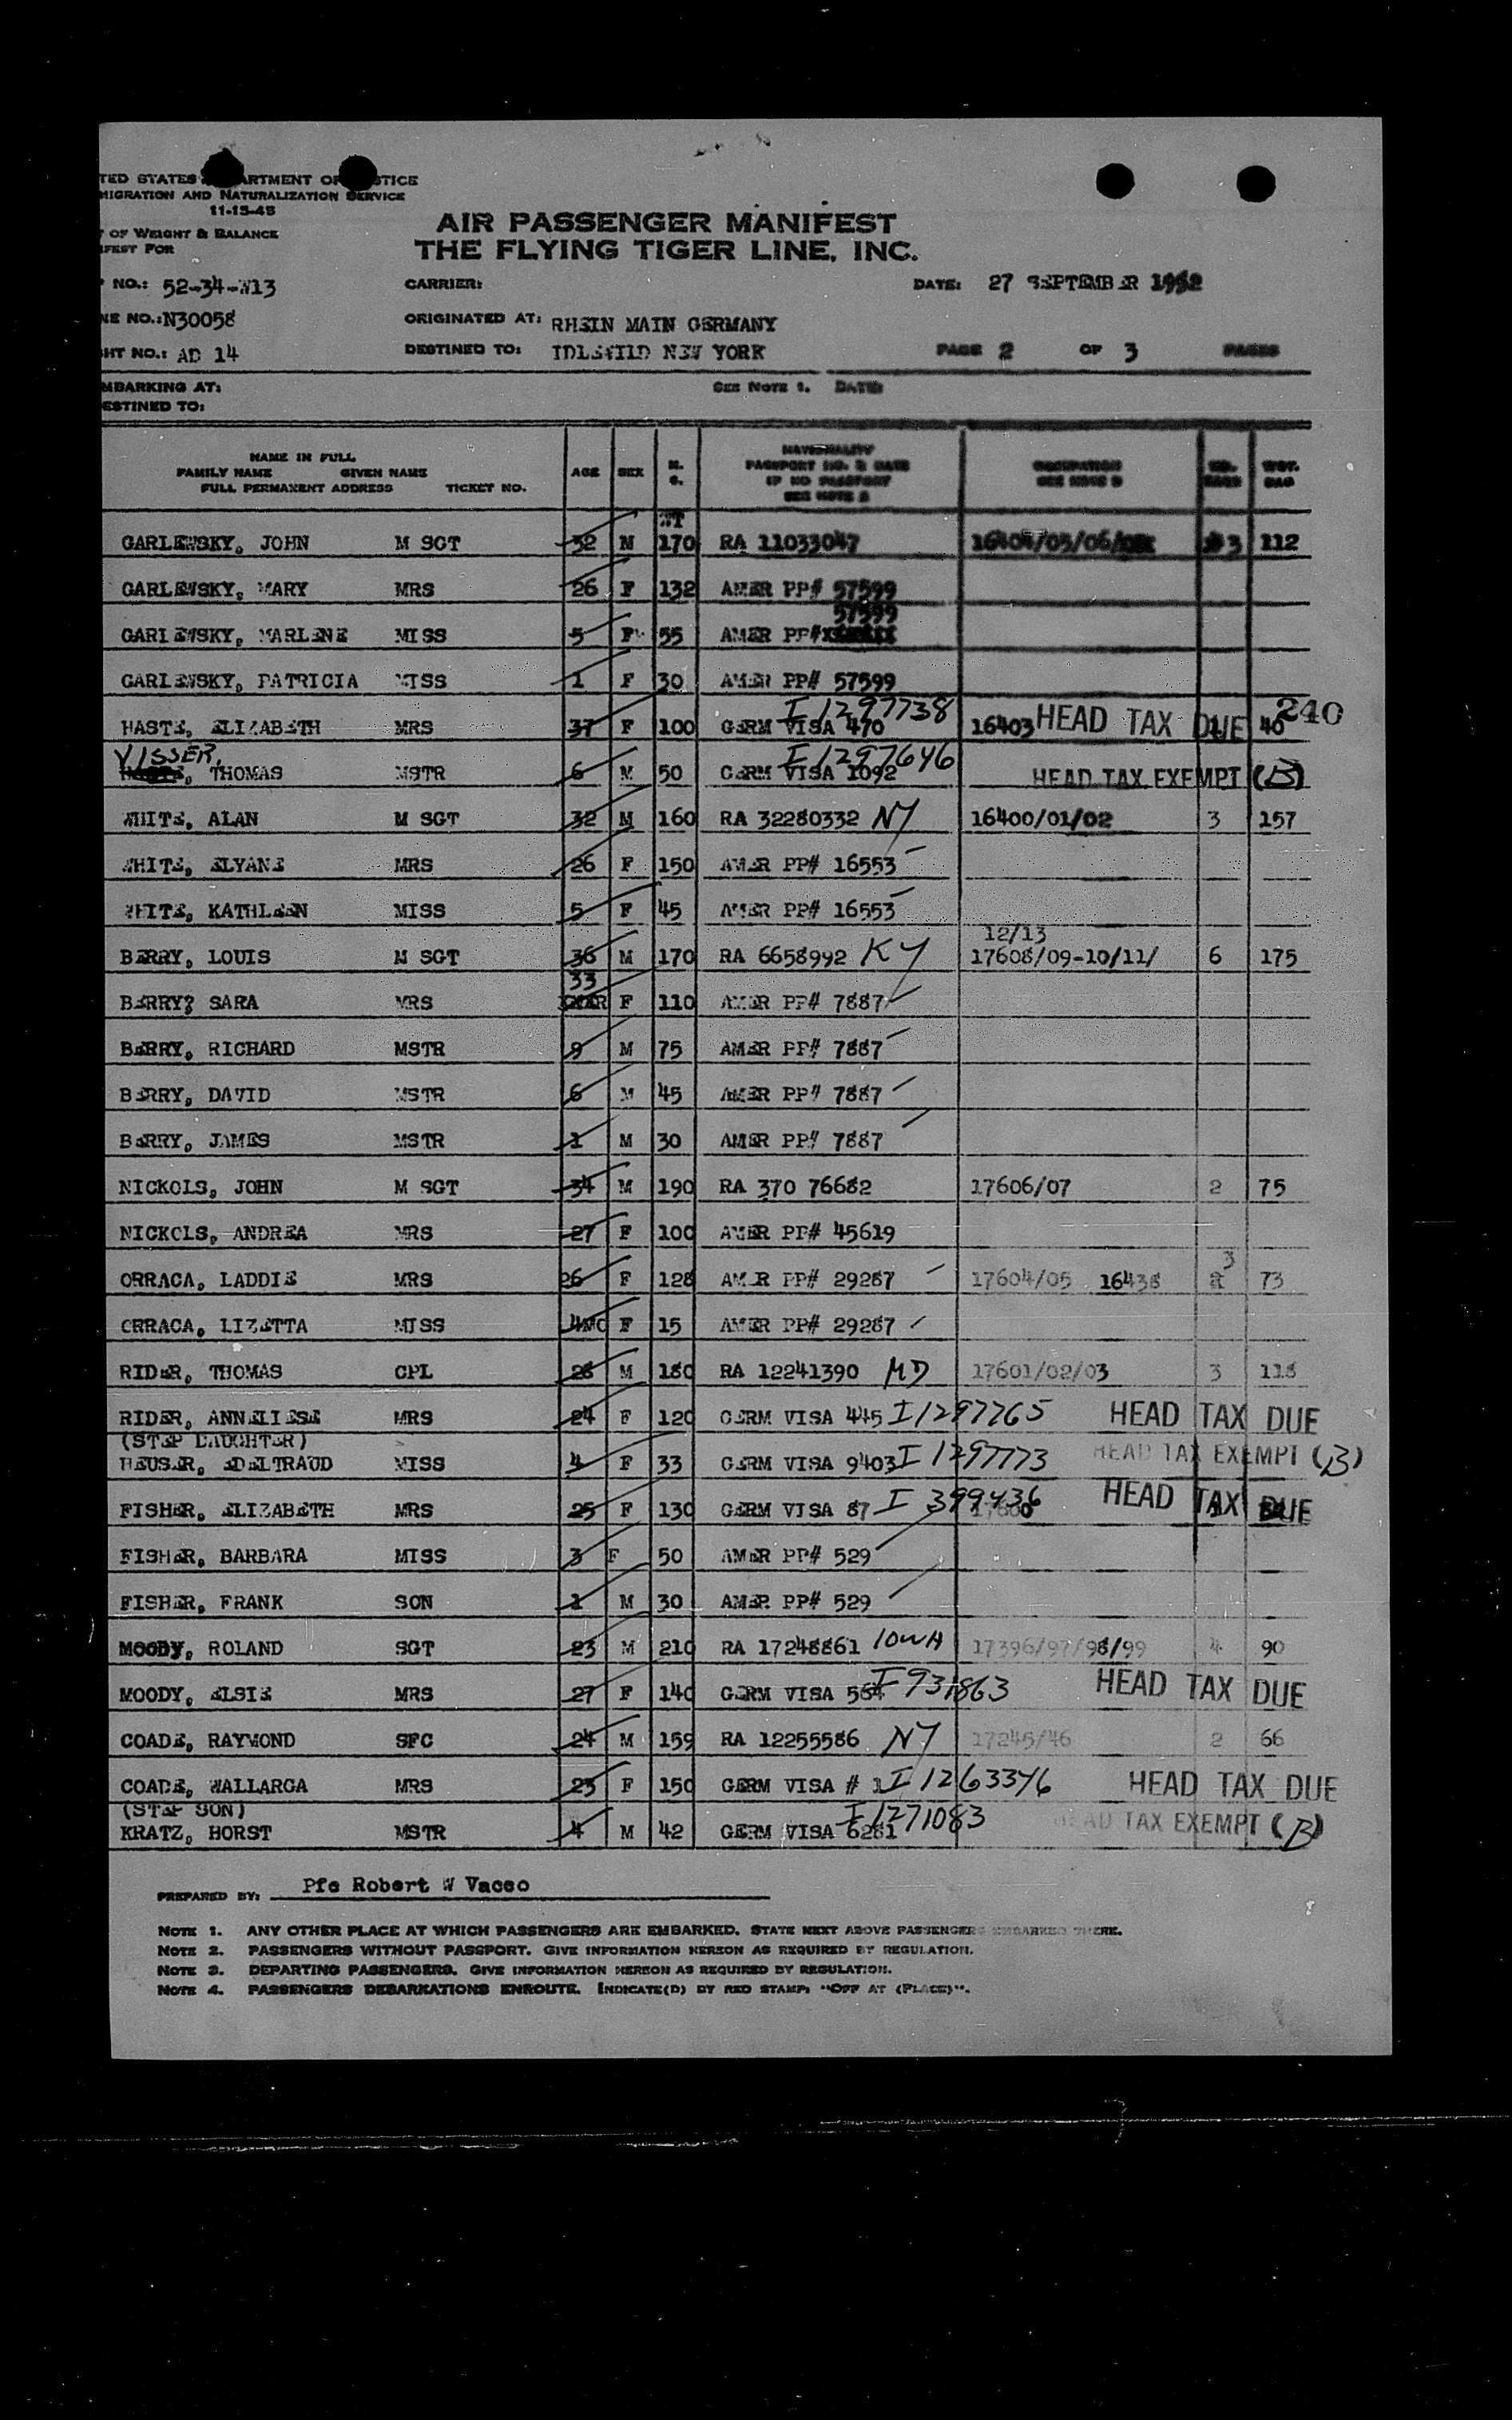 TED STATES ARTMENT OF STICE
MIGRATION AND NATURALIZATION SERVICE
11-15-45
T OF WEIGHT & BALANCE
IFEST FOR
AIR PASSENGER MANIFEST
THE FLYING TIGER LINE, INC.
P NO.: 52-34-W13 CARRIER: DATE: 27 SEPTEMBER 1952
NE NO.: N30058 ORIGINATED AT: RHEIN MAIN GERMANY
HT NO.: AD 14 DESTINED TO: IDLEWILD NEW YORK PAGE 2 OF 3 PAGES
MBARKING AT: SEE NOTE 1. DATE:
ESTINED TO:
NAME IN FULL
FAMILY NAME GIVEN NAME
FULL PERMANENT ADDRESS TICKET NO.
AGE SEX M. S.
NATIONALITY
PASSPORT NO. & DATE
IF NO PASSPORT
SEE NOTE 2
OCCUPATION
SEE NOTE 3
NO. BAGS WGT. BAG
WT
GARLEWSKY, JOHN M SGT 32 M 170 RA 11033047 16404/05/06/ 3 112
GARLEWSKY, MARY MRS 26 F 132 AMER PP# 57599
57599
GARLEWSKY, MARLENE MISS 5 F 55 AMER PP#
GARLEWSKY, PATRICIA MISS 1 F 30 AMER PP# 57599
I 1297738 240
HASTE, ELIZABETH MRS 37 F 100 GERM VISA 470 16403 HEAD TAX DUE 40
VISSER, I 1297646
, THOMAS MSTR 6 M 50 GERM VISA 1092 HEAD TAX EXEMPT (B)
WHITE, ALAN M SGT 32 M 160 RA 32280332 NY 16400/01/02 3 157
WHITE, ELYANE MRS 26 F 150 AMER PP# 16553
WHITE, KATHLEEN MISS 5 F 45 AMER PP# 16553
12/13
BERRY, LOUIS M SGT 36 M 170 RA 6658992 KY 17608/09-10/11/ 6 175
33
BERRY? SARA MRS F 110 AMER PP# 7887
BERRY, RICHARD MSTR 9 M 75 AMER PP# 7887
BERRY, DAVID MSTR 6 M 45 AMER PP# 7887
BERRY, JAMES MSTR 1 M 30 AMER PP# 7887
NICKOLS, JOHN M SGT 34 M 190 RA 370 76682 17606/07 2 75
NICKOLS, ANDREA MRS 27 F 100 AMER PP# 45619
3
ORRACA, LADDIE MRS 26 F 128 AMER PP# 29287 17604/05 16438 2 73
ORRACA, LIZETTA MISS 4MO F 15 AMER PP# 29287
RIDER, THOMAS CPL 28 M 180 RA 12241390 MD 17601/02/03 3 118
RIDER, ANNELIESE MRS 24 F 120 GERM VISA 445 I 1297765 HEAD TAX DUE
(STEP DAUGHTER)
HEUSER, EDELTRAUD MISS 4 F 33 GERM VISA 9403 I 1297773 HEAD TAX EXEMPT (B)
FISHER, ELIZABETH MRS 25 F 130 GERM VISA 87 I 399436 17600 HEAD TAX DUE
FISHER, BARBARA MISS 3 F 50 AMER PP# 529
FISHER, FRANK SON 1 M 30 AMER PP# 529
MOODY, ROLAND SGT 23 M 210 RA 17248861 IOWA 17396/97/98/99 4 90
MOODY, ELSIE MRS 27 F 140 GERM VISA 564 I 931863 HEAD TAX DUE
COADE, RAYMOND SFC 24 M 159 RA 12255586 NY 17245/46 2 66
COADE, WALLARGA MRS 23 F 150 GERM VISA # 1 I 1263346 HEAD TAX DUE
(STEP SON) I 1271083
KRATZ, HORST MSTR 4 M 42 GERM VISA 6281 HEAD TAX EXEMPT (B)
PREPARED BY: Pfc Robert W Vacco
NOTE 1. ANY OTHER PLACE AT WHICH PASSENGERS ARE EMBARKED. STATE NEXT ABOVE PASSENGERS EMBARKED THERE.
NOTE 2. PASSENGERS WITHOUT PASSPORT. GIVE INFORMATION HEREON AS REQUIRED BY REGULATION.
NOTE 3. DEPARTING PASSENGERS. GIVE INFORMATION HEREON AS REQUIRED BY REGULATION.
NOTE 4. PASSENGERS DEBARKATIONS ENROUTE. INDICATE(D) BY RED STAMP: "OFF AT (PLACE)".